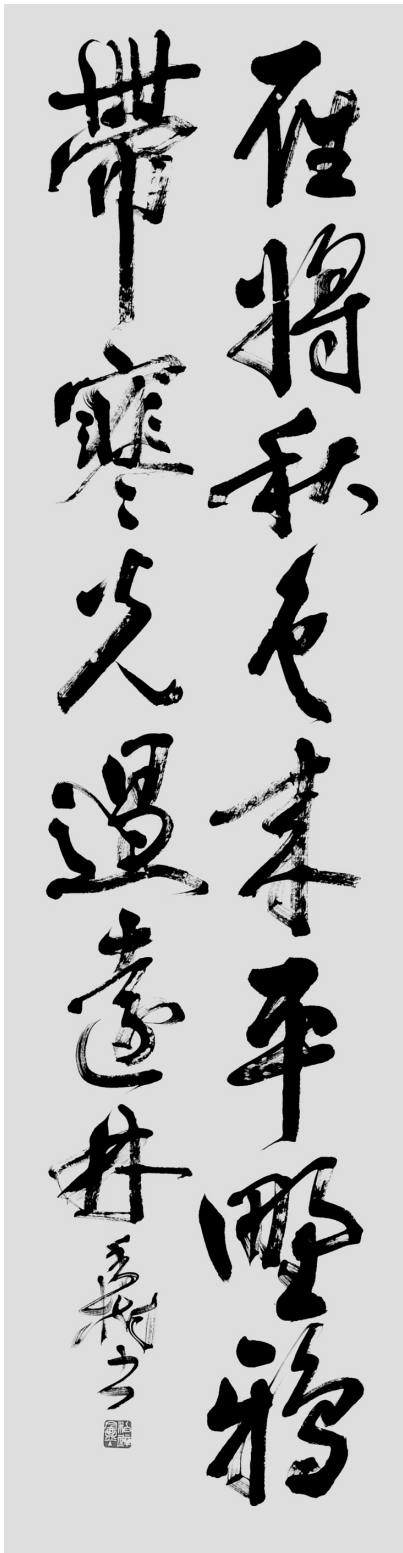 雁將秋色来平野鴉
帶寒光過遠林